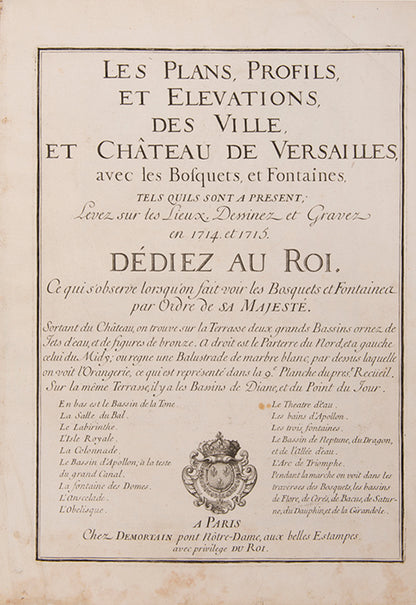 LES PLANS, PROFILS,
ET ELEVATIONS,
DES VILLE,
ET CHÂTEAU DE VERSAILLES,
avec les Bosquets, et Fontaines,
TELS QUILS SONT A PRESENT;
Levez sur les Lieux, Dessinez et Gravez
en 1714. et 1715.
DÉDIEZ AU ROI.
Ce qui s'observe lorsqu'on fait voir les Bosquets et Fontaines
par Ordre de SA MAJESTÉ.
Sortant du Château, on trouve sur la Terrasse deux grands Bassins ornez de
Jets d'eau, et de figures de bronze. A droit est le Parterre du Nord, et a gauche
celui du Midy, ou regne une Balustrade de marbre blanc, par dessus laquelle
on voit l'Orangerie, ce qui est représenté dans la 9e. Planche du prest. Recüeil.
Sur la même Terrasse, il y a les Bassins de Diane, et du Point du Jour.
En bas est le Bassin de la Tone.
La Salle du Bal.
Le Labirinthe.
L'Isle Royale.
La Colonnade.
Le Bassin d'Apollon, à la teste
du grand Canal.
La fontaine des Domes.
L'Anselade.
L'Obelisque.
Le Theatre d'eau.
Les bains d'Apollon.
Les trois fontaines.
Le Bassin de Neptune, du Dragon,
et de l'Allée d'eau.
L'Arc de Triomphe.
Pendant la marche on voit dans les
traverses des Bosquets, les bassins
de Flore, de Cerés, de Bacus, de Satur-
ne, du Dauphin, et de la Girandole.
A PARIS
Chez DEMORTAIN pont Nôtre-Dame, aux belles Estampes.
avec privilege DU ROI.